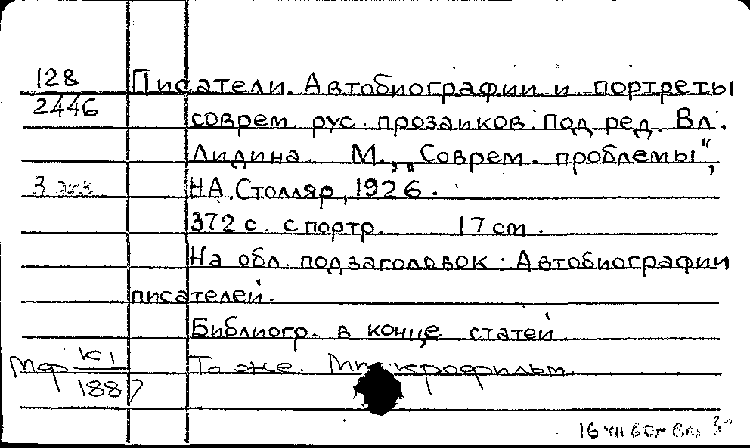 128 Писатели. Автобиографии и портреты
2446 соврем. рус. прозаиков. Под ред. Вл.
Лидина. М., „Соврем. проблемы“,
3 экз. Н.А. Столляр, 1926.
372 с. с портр. 17 см.
На обл. подзаголовок: Автобиографии
писателей.
Библиогр. в конце статей
Мф К1 То же. Микрофильм.
1887
16 VII 65г